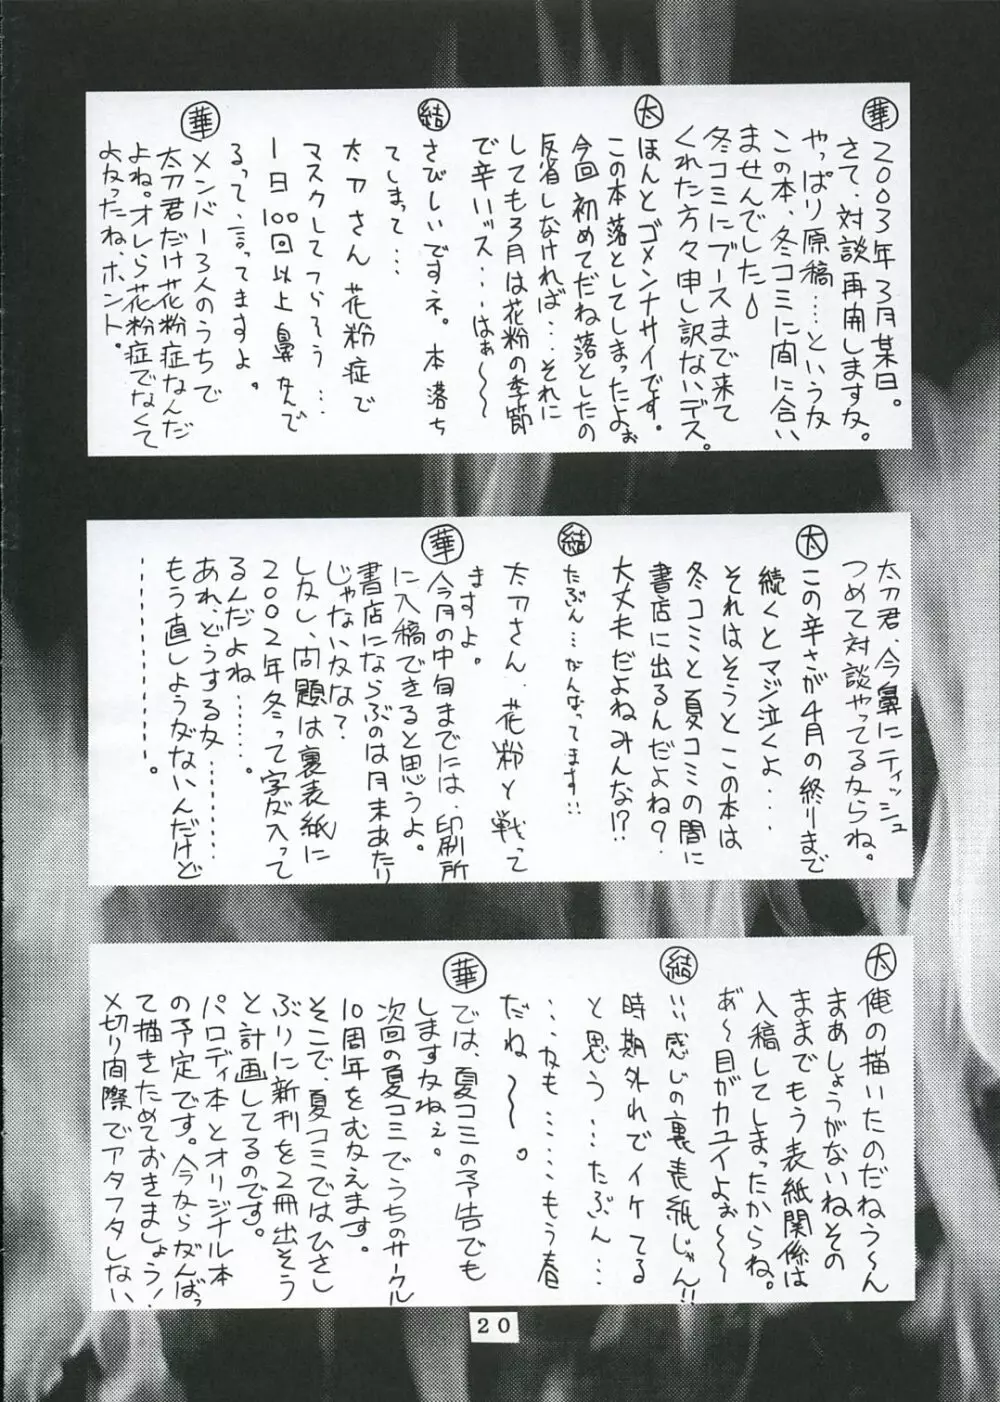 華
２００３年３月某日。
さて、対談再開しますか。
やっぱり原稿…というか
この本、冬コミに間に合い
ませんでした
冬コミにブースまで来て
くれた方々申し訳ないデス。
太
ほんとゴメンナサイです。
この本落としてしまったよぉ
今回初めてだね落としたの
反省しなければ…それに
しても３月は花粉の季節
で辛いッス…はぁ〜〜
結
さびしいですネ。本落ち
てしまって…
太刀さん花粉症で
マスクしてつらそう…
１日100回以上鼻かんで
るって、言ってますよ。
華
メンバー３人のうちで
太刀君だけ花粉症なんだ
よね。オレら花粉症でなくて
よかったね、ホント。
太刀君、今鼻にティッシュ
つめて対談やってるからね。
太
この辛さが４月の終りまで
続くとマジ泣くよ…
それはそうとこの本は
冬コミと夏コミの間に
書店に出るんだよね？
大丈夫だよねみんな!?
結
たぶん…がんばってます!!
太刀さん、花粉と戦って
ますよ。
華
今月の中旬までには、印刷所
に入稿できると思うよ。
書店にならぶのは月末あたり
じゃないかな？
しかし、問題は裏表紙に
２００２年冬って字が入って
るんだよね……。
あれ、どうするか………
もう直しようがないんだけど
……………。
太
俺の描いたのだねう〜ん
まあしょうがないねその
ままでもう表紙関係は
入稿してしまったからね。
あ〜目がカユイよぉ〜〜
結
いい感じの裏表紙じゃん!!
時期外れでイケてる
と思う…たぶん…
…かも……もう春
だね〜〜。
華
では、夏コミの予告でも
しますかねぇ。
次回の夏コミでうちのサークル
10周年をむかえます。
そこで、夏コミではひさし
ぶりに新刊を２冊出そう
と計画してるのです。
パロディ本とオリジナル本
の予定です。今からがんばっ
て描きためておきましょう！
〆切り間際でアタフタしない
20